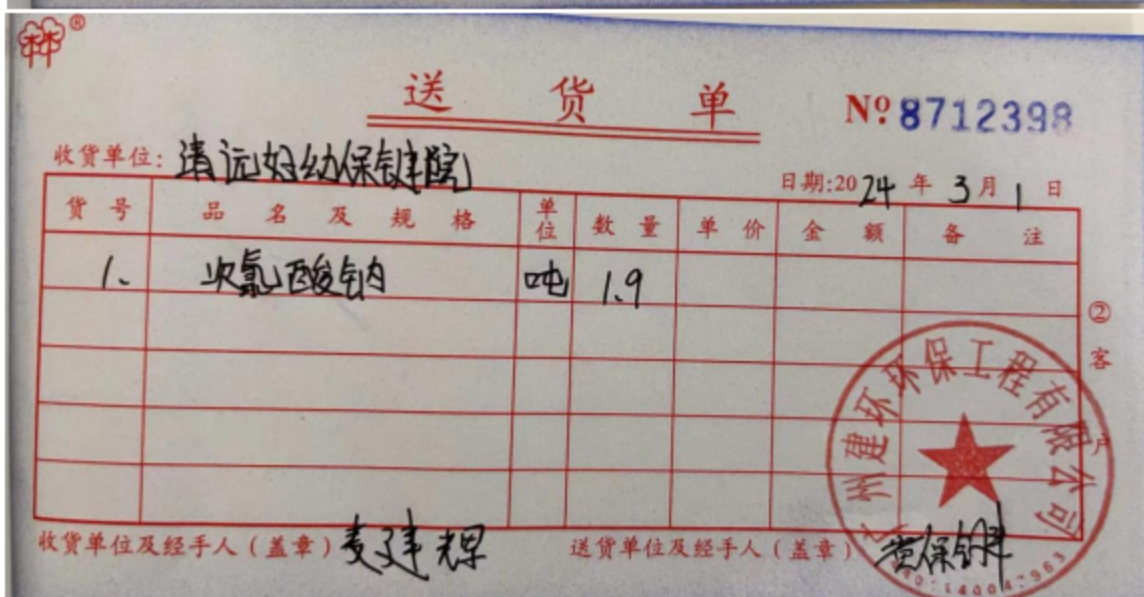 送货单
№ 8712398
收货单位: 清远妇幼保键院
日期:2024年3月1日
货号 品名及规格 单位 数量 单价 金额 备注
1. 次氯酸钠 吨 1.9
②客户
广州建环环保工程有限公司
收货单位及经手人(盖章) 麦建辉
送货单位及经手人(盖章) 黄保键